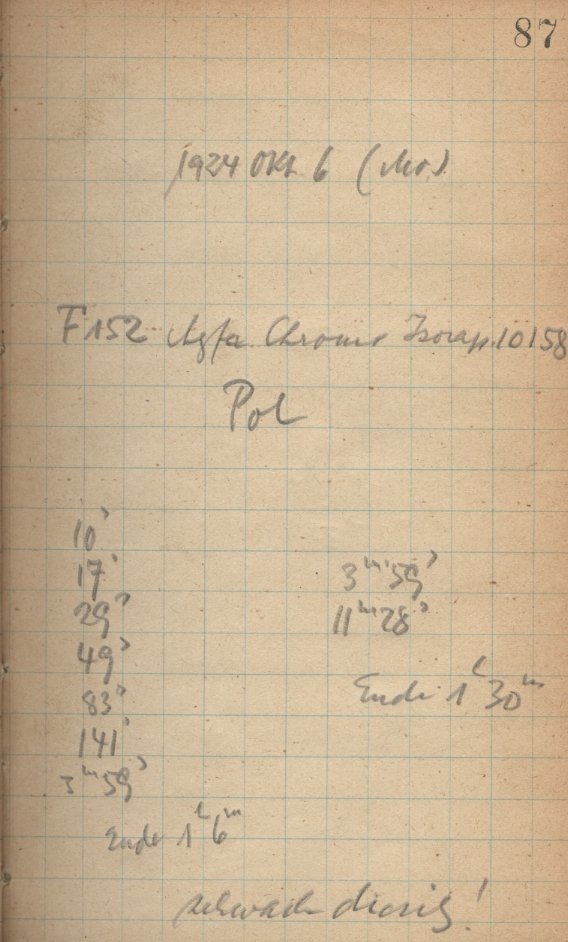 87
1924 Okt 6 (Mo.)
F152 Agfa Chromo Isorap. 10158
Pol
10ˢ
17ˢ
29ˢ
49ˢ
83ˢ
141ˢ
3ᵐ59ˢ
Ende 1ʰ6ᵐ
3ᵐ59ˢ
11ᵐ28ˢ
Ende 1ʰ30ᵐ
schwach diesig!